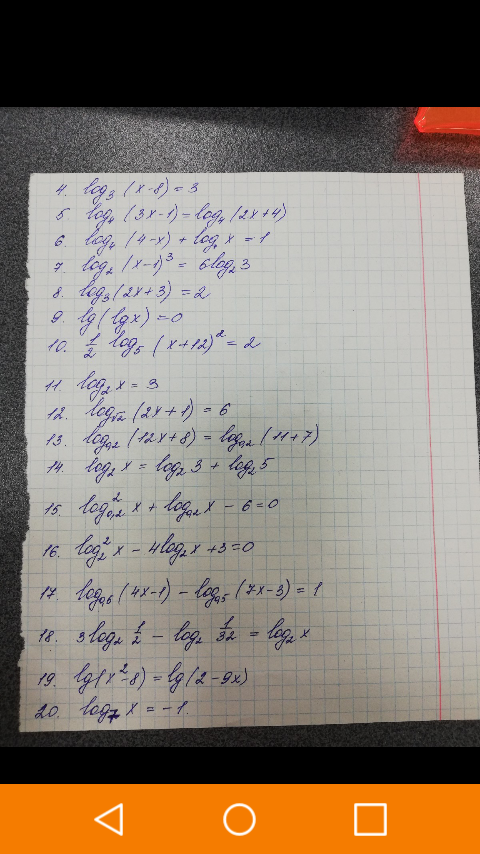 4. log₃ (x-8) = 3
5 log₄ (3x-1) = log₄ (2x+4)
6. log₄ (4-x) + log₄ x = 1
7. log₂ (x-1)³ = 6log₂3
8. log₃ (2x+3) = 2
9. lg (lgx) = 0
10. 1/2 log₅ (x+12)² = 2
11. log₂ x = 3
12. log√2 (2x+1) = 6
13. log0,2 (12x+8) = log0,2 (11+7)
14. log₂ x = log₂ 3 + log₂ 5
15. log²0,2 x + log0,2 x - 6 = 0
16. log₂² x - 4log₂ x + 3 = 0
17. (4x-1) - (7x-3) = 1
18. 3log₂ 1/2 - log₂ 1/32 = log₂ x
19. lg(x²-8) = lg(2-9x)
20. log₇ x = -1.